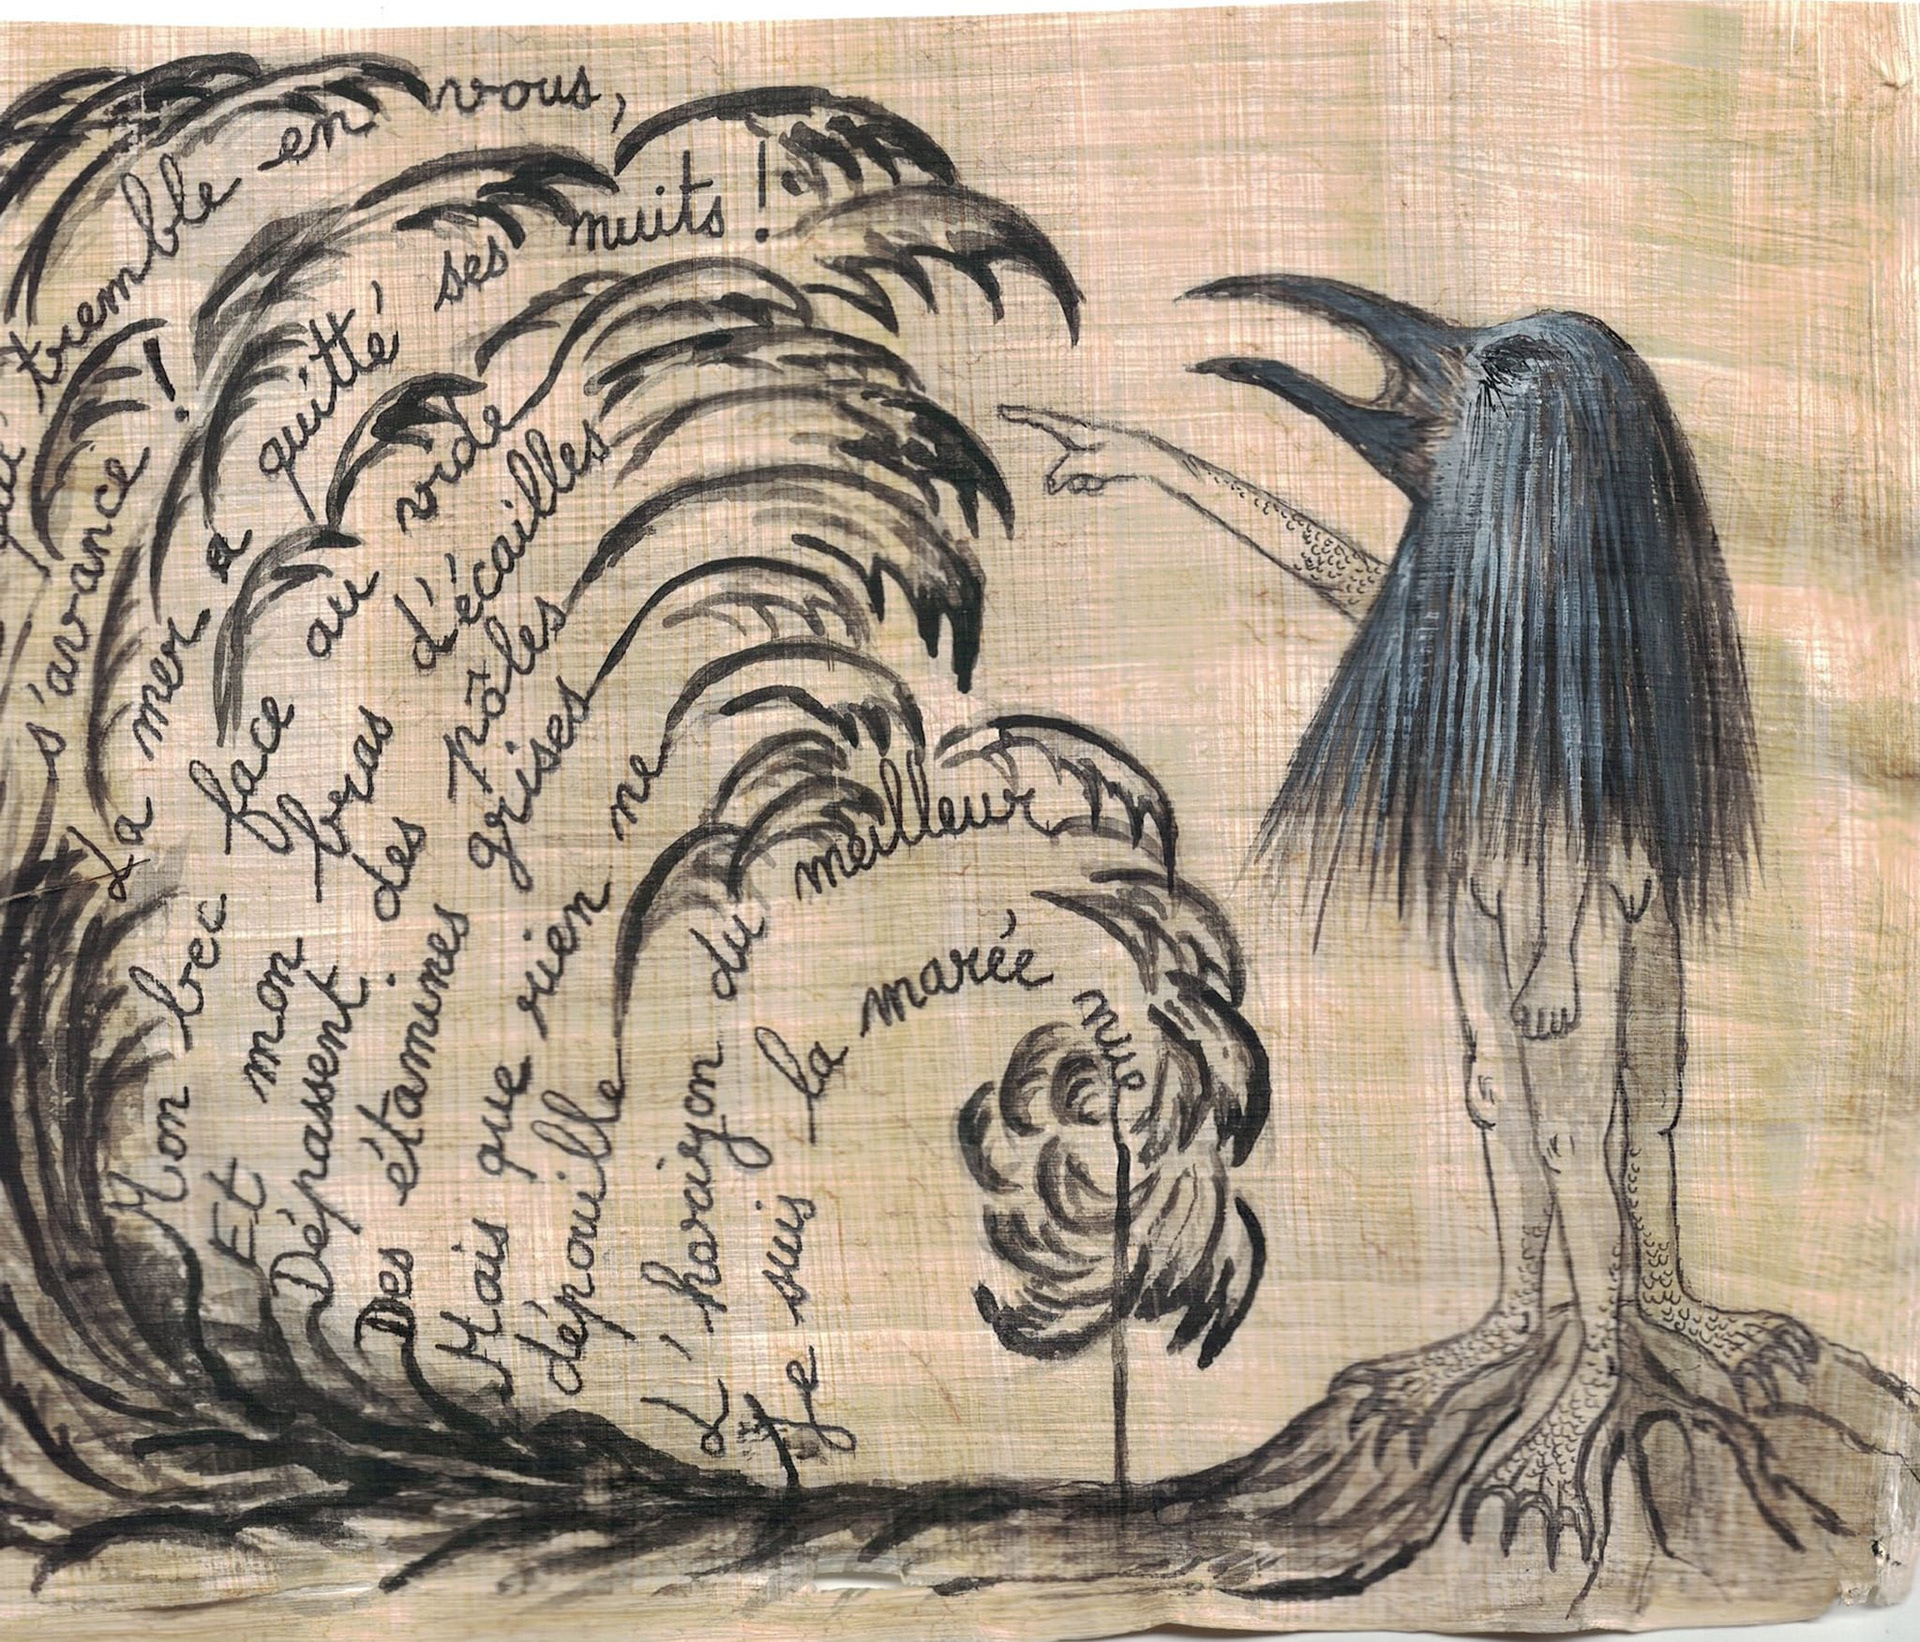 tremble en vous,
s'avance !
La mer a quitté ses nuits !
Mon bec face au vide
Et mon bras d'écailles
Dépassent des pôles
Des étamines grises
Mais que rien ne
dépouille
L'horizon du meilleur
Je suis la marée nue